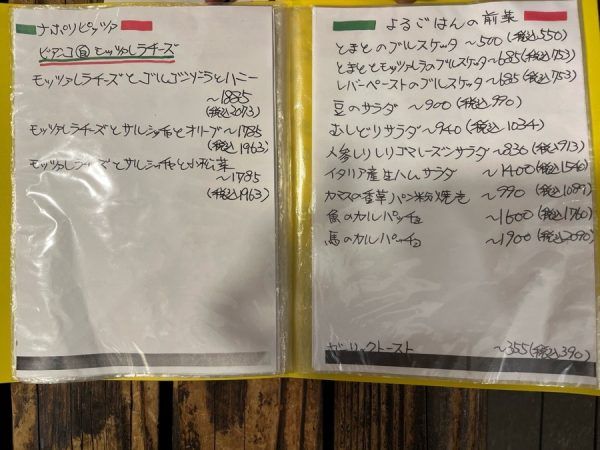 ナポリピッツァ
ビアンコ(白)モッツァレラチーズ
モッツァレラチーズとゴルゴンゾーラとハニー
~1885
(税込2073)
モッツァレラチーズとサルシッチャとオリーブ~1785
(税込1963)
モッツァレラチーズとサルシッチャと小松菜
~1785
(税込1963)
よるごはんの前菜
とまとのブルスケッタ ~500(税込550)
とまととモッツァレラのブルスケッタ~685(税込753)
レバーペーストのブルスケッタ~685(税込753)
豆のサラダ ~900(税込990)
むしどりサラダ~940(税込1034)
人参しりしりゴマレーズンサラダ ~830(税込913)
イタリア産生ハムサラダ ~1400(税込1540)
カマスの香草パン粉焼き ~990(税込1089)
魚のカルパッチョ ~1600(税込1760)
馬のカルパッチョ ~1900(税込2090)
ガーリックトースト ~355(税込390)